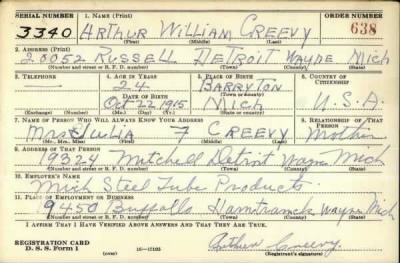 SERIAL NUMBER 1. NAME (Print) ORDER NUMBER
3340 ARTHUR WILLIAM CREEVY 638
(First) (Middle) (Last)
2. ADDRESS (Print)
20052 RUSSELL DETROIT WAYNE MICH
(Number and street or R. F. D. number) (Town) (County) (State)
3. TELEPHONE 4. AGE IN YEARS 5. PLACE OF BIRTH 6. COUNTRY OF CITIZENSHIP
— 24 BARRYTON
DATE OF BIRTH (Town or county)
Oct 22 1915 MICH U.S.A.
(Exchange) (Number) (Mo.) (Day) (Yr.) (State or country)
7. NAME OF PERSON WHO WILL ALWAYS KNOW YOUR ADDRESS 8. RELATIONSHIP OF THAT PERSON
Mrs Julia F CREEVY Mother
(Mr., Mrs., Miss) (First) (Middle) (Last)
9. ADDRESS OF THAT PERSON
19324 Mitchell Detroit Wayne Mich
(Number and street or R. F. D. number) (Town) (County) (State)
10. EMPLOYER'S NAME
Mich Steel Tube Products.
11. PLACE OF EMPLOYMENT OR BUSINESS
9450 Buffalo Hamtramck Wayne Mich
(Number and street or R. F. D. number) (Town) (County) (State)
I AFFIRM THAT I HAVE VERIFIED ABOVE ANSWERS AND THAT THEY ARE TRUE.
REGISTRATION CARD Arthur Creevy
D. S. S. Form 1 (over) 16—17105 (Registrant's signature)